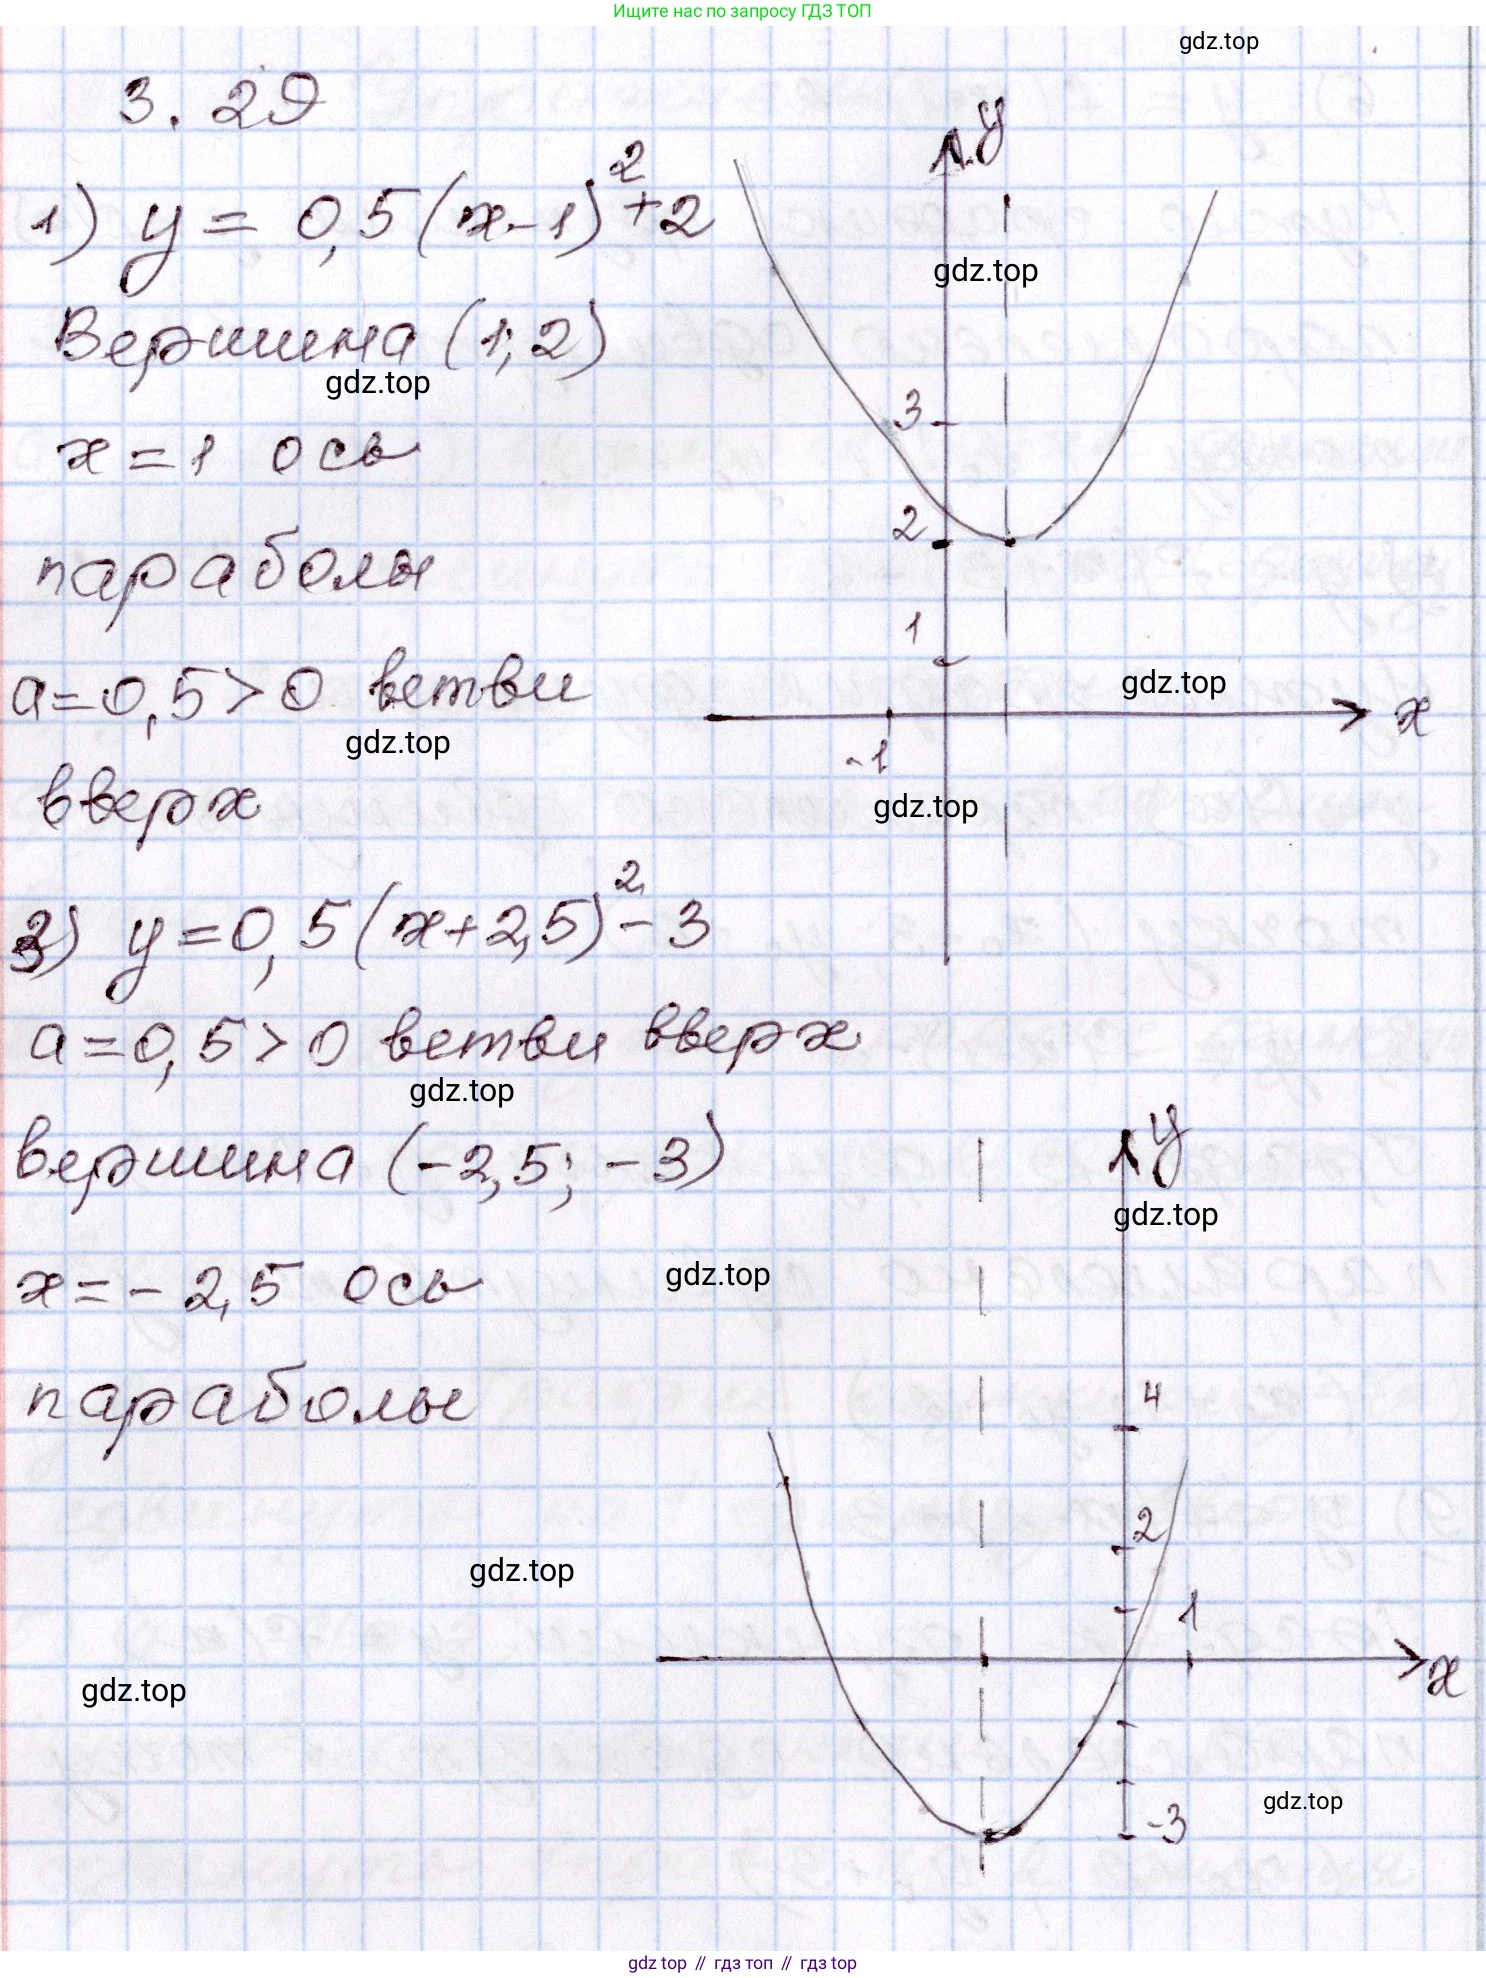 Ищите нас по запросу ГДЗ ТОП
gdz.top
3.29
1) y = 0,5(x-1)²+2
Вершина (1; 2)
gdz.top
x = 1 ось
параболы
a=0,5>0 ветви
gdz.top
вверх
y
gdz.top
3
2
1
gdz.top
x
-1
gdz.top
3) y=0,5(x+2,5)²-3
a=0,5>0 ветви вверх
gdz.top
вершина (-2,5; -3)
x=-2,5 ось
gdz.top
параболы
gdz.top
gdz.top
y
gdz.top
4
2
1
x
gdz.top
-3
gdz top // гдз топ // гдз top